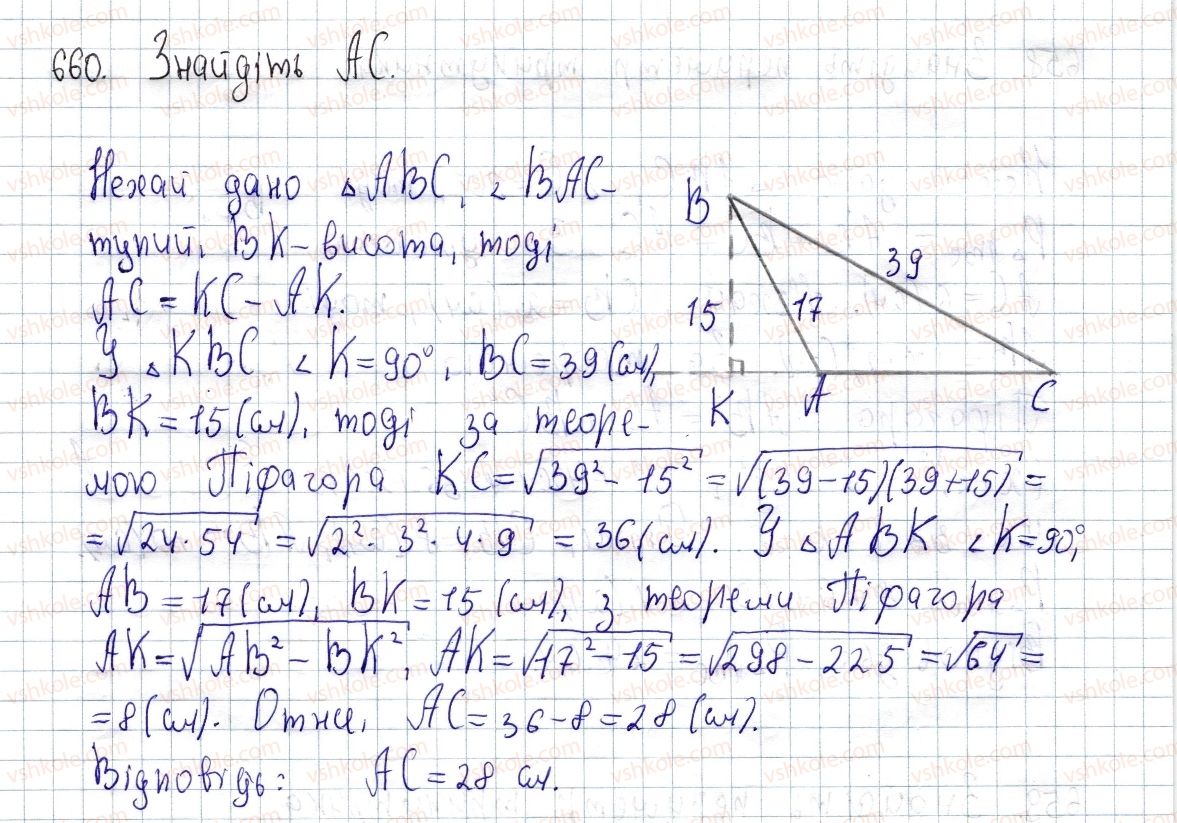 660. Знайдіть AC.
Нехай дано △ABC, ∠BAC-
тупий, BK – висота, тоді
AC = KC – AK.
У △KBC ∠K = 90°, BC = 39 (см),
BK = 15 (см), тоді за теоре-
мою Піфагора KC = √(39² – 15²) = √((39 – 15)(39 + 15)) =
= √(24 · 54) = √(2² · 3² · 4 · 9) = 36 (см). У △ABK ∠K = 90°,
AB = 17 (см), BK = 15 (см), з теореми Піфагора
AK = √(AB² – BK²), AK = √(17² – 15) = √(298 – 225) = √64 =
= 8 (см). Отже, AC = 36 – 8 = 28 (см).
Відповідь: AC = 28 см.
B
39
15
17
K
A
C
vshkole.com